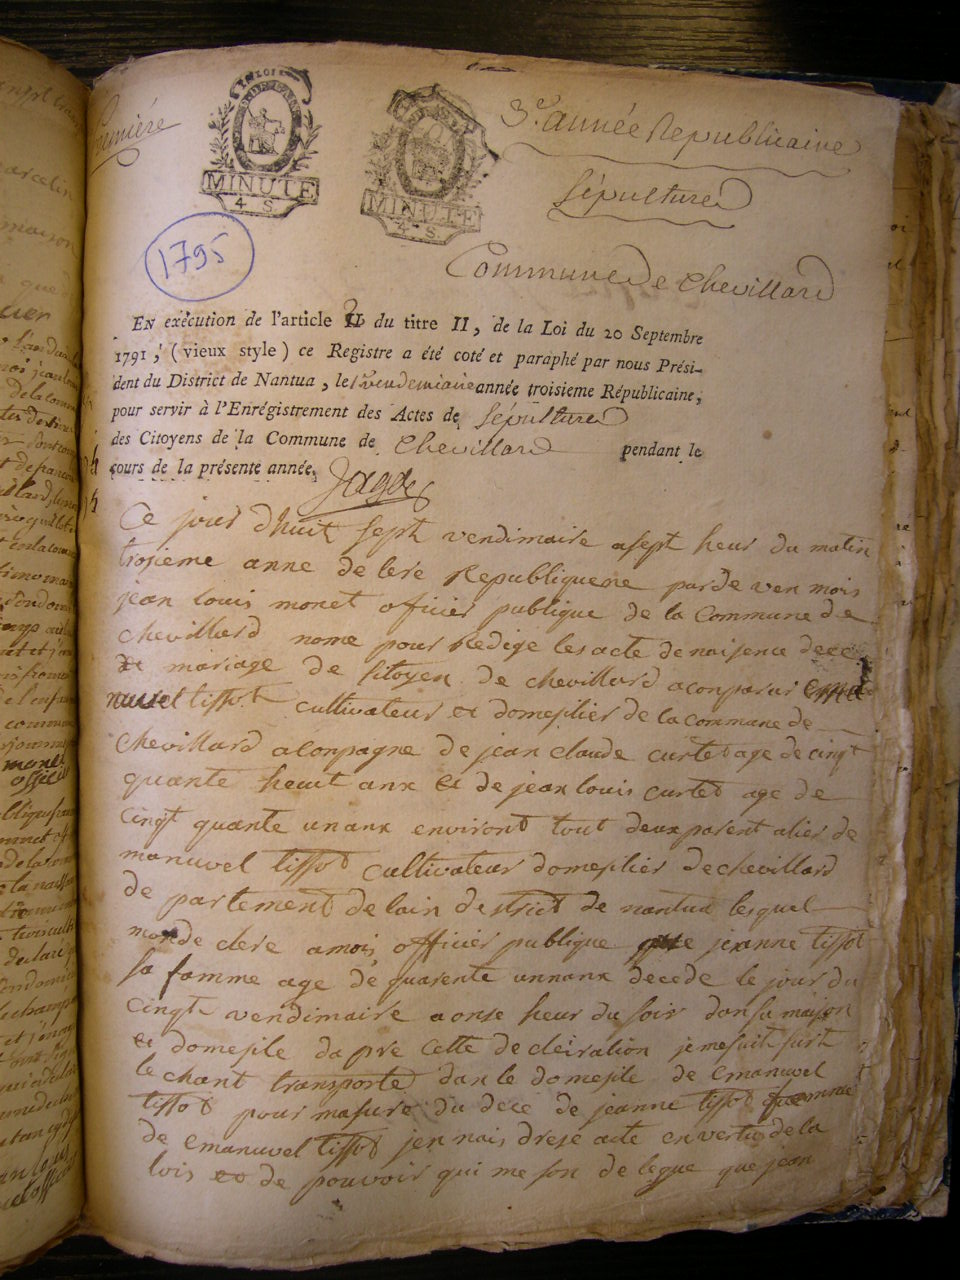 Première
LA LOI
MINUTE
4 S.
MINUTE
4 S.
3e. année Republicaine
Sépultures
1795
Commune de Chevillard
En exécution de l'article II du titre II, de la Loi du 20 Septembre
1791, (vieux style) ce Registre a été coté et paraphé par nous Prési-
dent du District de Nantua, le 1er vendemiaire année troisieme Républicaine,
pour servir à l'Enrégistrement des Actes de Sépultures
des Citoyens de la Commune de Chevillard pendant le
cours de la présente année.
Jagot
Ce jour dhuit sept vendimaire asept heur du matin
trosieme anne de lere Republiquene par de ven mois
jean louis monet officier publique de la Commune de
chevilliard nome pour Redige les acte de naisence dece
et mariage de sitoyen de chevillard aconparu
manuvel tissot cultivateur et domesilier de la commune de
chevillard aconpagne de jean claude curtet age de cingt
quante heuit anx et de jean louis curtet age de
cingt quante unanx environt tout deux parent alier de
manuvel tissot cultivateur domesilier de chevillard
de partement de lain destrict de nantua lesquel
monde clere amois officier publique que jeanne tissot
sa famme age de quarente unnanx decede le jour du
cingt vendimaire a onse heur du soir dan sa maison
et domesile dapre cette decleiration jemesuit surt
le chant transporte dan le domesile de emanuvel
tissot pour masure du dece de jeanne tissot famme
de emanuvel tissot jen nais drese acte envertu de la
lois et de pouvoir qui me son de legue que jean